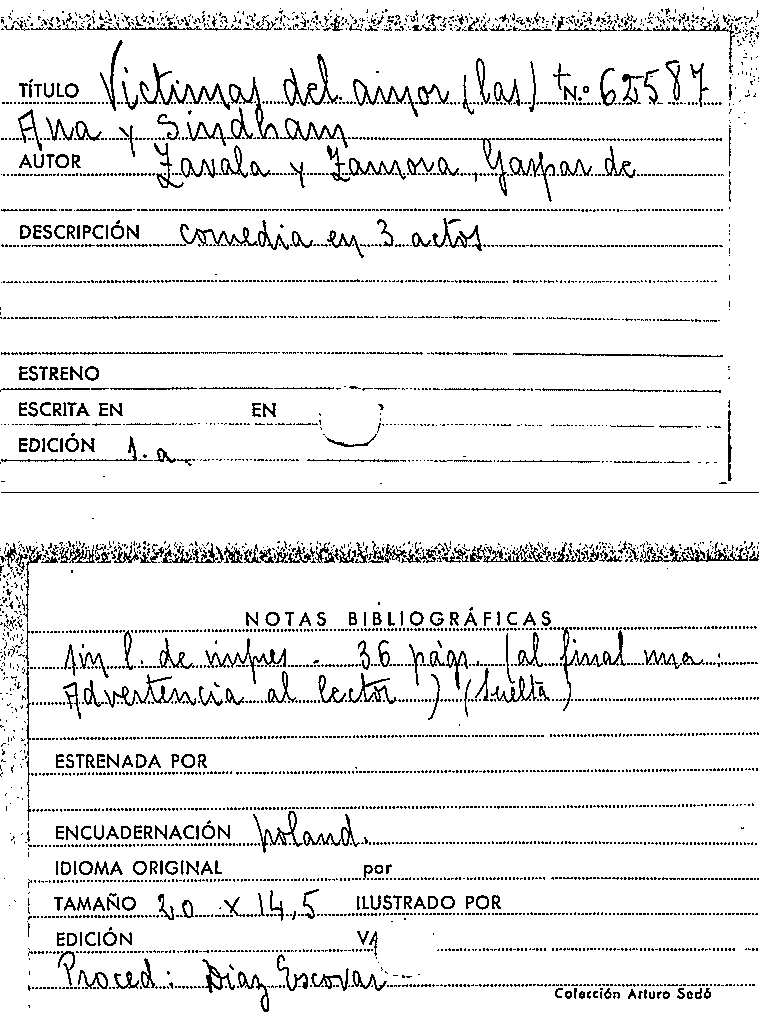 TÍTULO Victimas del amor (las) t N.º 62587
Ana y Sindham
AUTOR Zavala y Zamora, Gaspar de
DESCRIPCIÓN comedia en 3 actos
ESTRENO
ESCRITA EN EN
EDICIÓN 1.a
NOTAS BIBLIOGRÁFICAS
sin l. de impres - 36 págs. (al final una:
Advertencia al lector) (Suelta)
ESTRENADA POR
ENCUADERNACIÓN holand.
IDIOMA ORIGINAL por
TAMAÑO 20 x 14,5 ILUSTRADO POR
EDICIÓN
Proced: Diaz Escovar
Colección Arturo Sedó